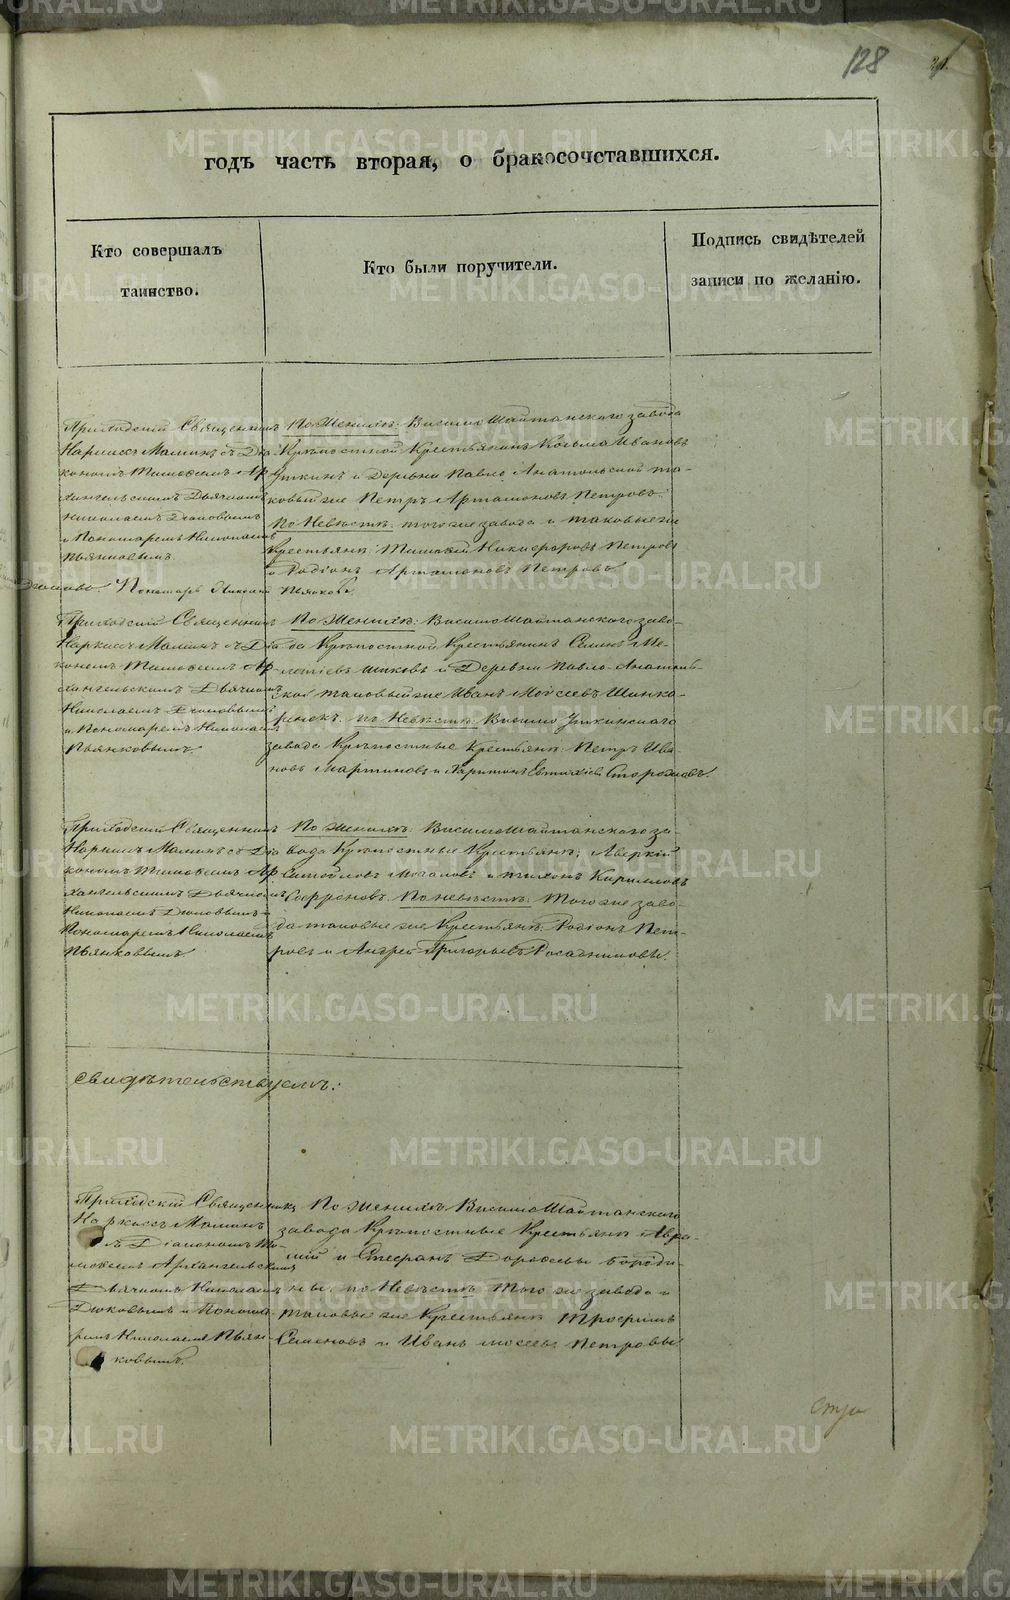 128
годъ часть вторая, о бракосочетавшихся.
Кто совершалъ
таинство.
Кто были поручители.
Подпись свидѣтелей
записи по желанію.
Приходскій Священникъ
Наркисъ Маминъ съ Діа
кономъ Тимофеемъ Ар
хангельскимъ Дьячкомъ
Николаемъ Дюковымъ
и Пономаремъ Николаемъ
Пьянковымъ
По Женихѣ: Висимо Шайтанскаго завода
Крѣпостной Крестьянинъ Козьма Ивановъ
Уткинъ и Деревни Павло Анатольской та-
ковый же Петръ Артамоновъ Петровъ.
По Невѣстѣ: того же завода и таковые же
Крестьяне: Тимофей Никифоровъ Петровъ
и Родіонъ Артамоновъ Петровъ
Пономарь Николай Пьянковъ
Приходскій Священникъ
Наркисъ Маминъ съ Діа
кономъ Тимофеемъ Ар
хангельскимъ Дьячкомъ
Николаемъ Дюковымъ
и Пономаремъ Николаемъ
Пьянковымъ
По Женихѣ: Висимо Шайтанскаго заво-
да Крѣпостной Крестьянинъ Семенъ
и Деревни Павло-Анатоль-
ской таковый же Иванъ Моисеевъ Шинка-
ренокъ. по Невѣстѣ: Висимо Уткинскаго
завода Крѣпостные Крестьяне: Петръ Ива
новъ Мартиновъ и Харитонъ Евтихіевъ
Приходскій Священникъ
Наркисъ Маминъ съ Діа
кономъ Тимофеемъ Ар
хангельскимъ Дьячкомъ
Николаемъ Дюковымъ и
Пономаремъ Николаемъ
Пьянковымъ
По женихѣ: Висимо Шайтанскаго за-
вода Крѣпостные Крестьяне: Аверкій
Самойловъ Мочаловъ и Тихонъ Кирилловъ
По невѣстѣ: Того же заво-
да таковые же Крестьяне Родіонъ Пет-
ровъ и Андрей Григорьевъ
свидѣтельствуемъ:
Приходскій Священникъ
Наркисъ Маминъ
съ Діакономъ Ти-
мофеемъ Архангельскимъ
Дьячкомъ Николаемъ
Дюковымъ и Понома-
ремъ Николаемъ Пьян-
ковымъ.
По женихѣ Висимо Шайтанскаго
завода Крѣпостные Крестьяне Авра-
мій и Стефанъ Дорофеевы Бороди-
ны. по Невѣстѣ Того же завода и
таковые же Крестьяне Трофимъ
Семеновъ и Иванъ Моссевъ Петровы
METRIKI.GASO-URAL.RU